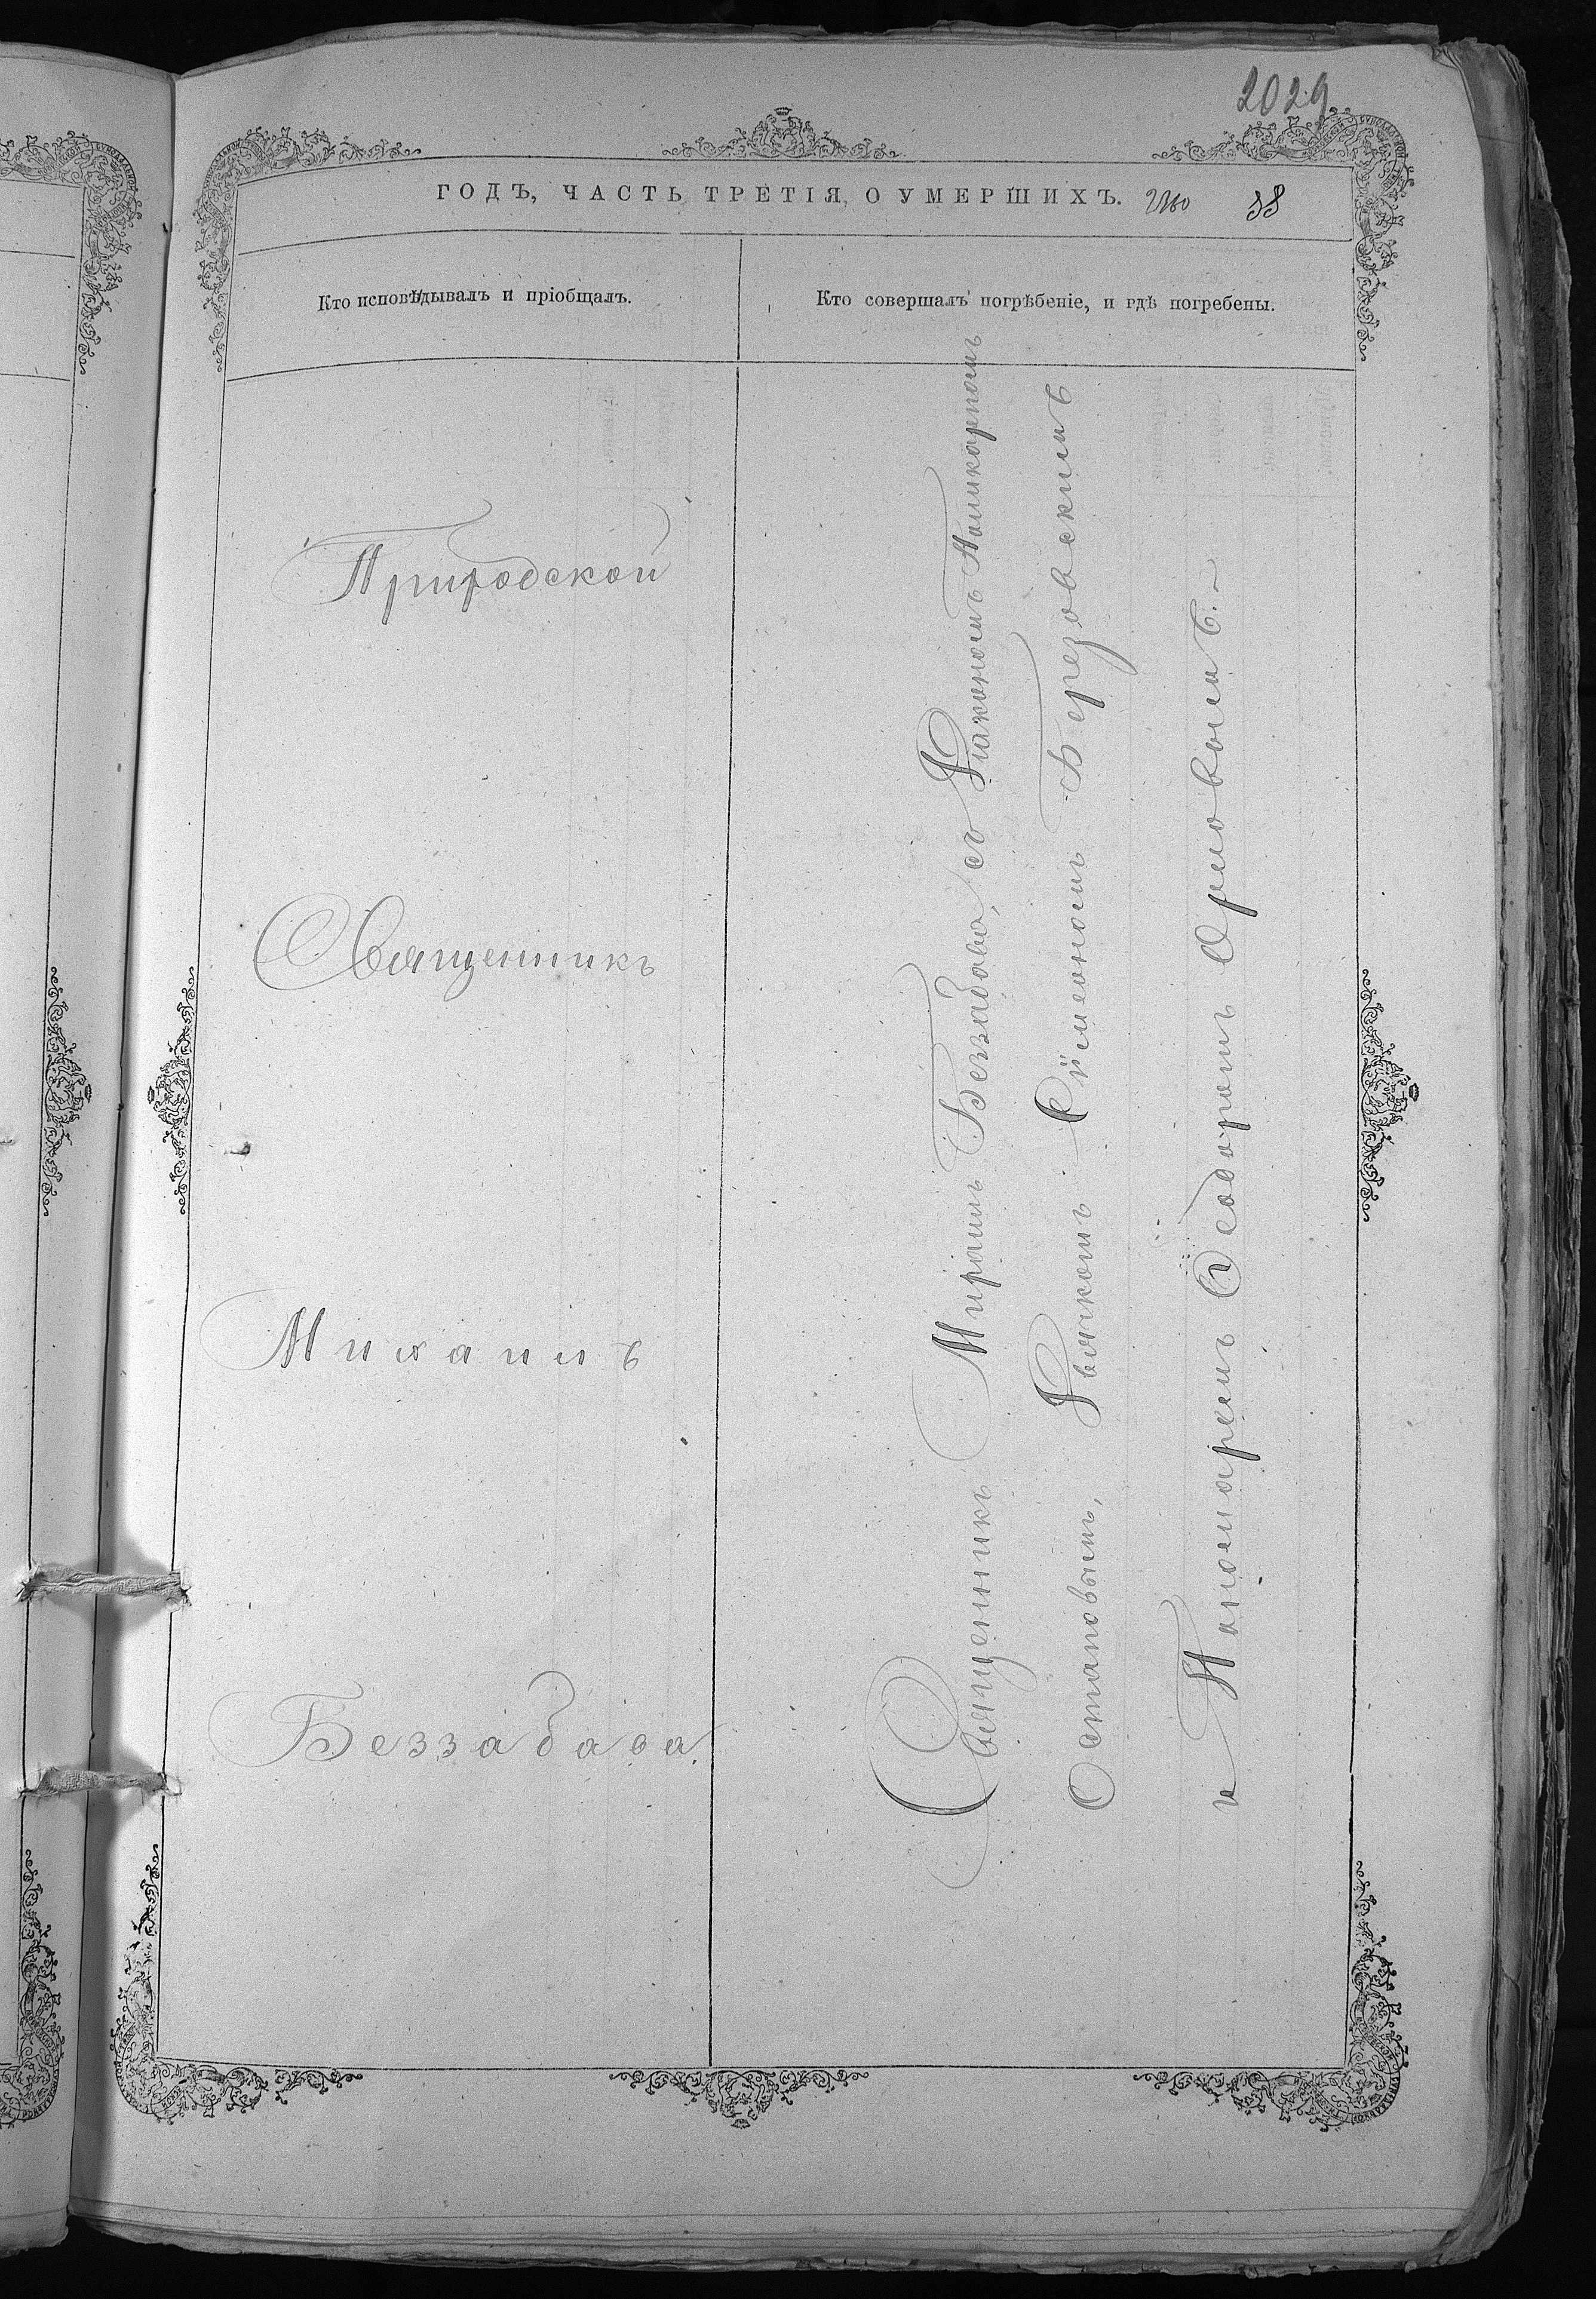 2029
ГОДЪ, ЧАСТЬ ТРЕТІЯ, О УМЕРШИХЪ. 38
Кто исповѣдывалъ и пріобщалъ.
Кто совершалъ погрѣбеніе, и гдѣ погребены.
Приходской
Священникъ
Михаилъ
Беззабава
Священникъ Беззабава, съ Діакономъ Поликарпомъ
Остаповымъ, Дьячкомъ Сѵмеономъ Березовскимъ
и Пономаремъ Ѳеодоромъ Орловымъ.